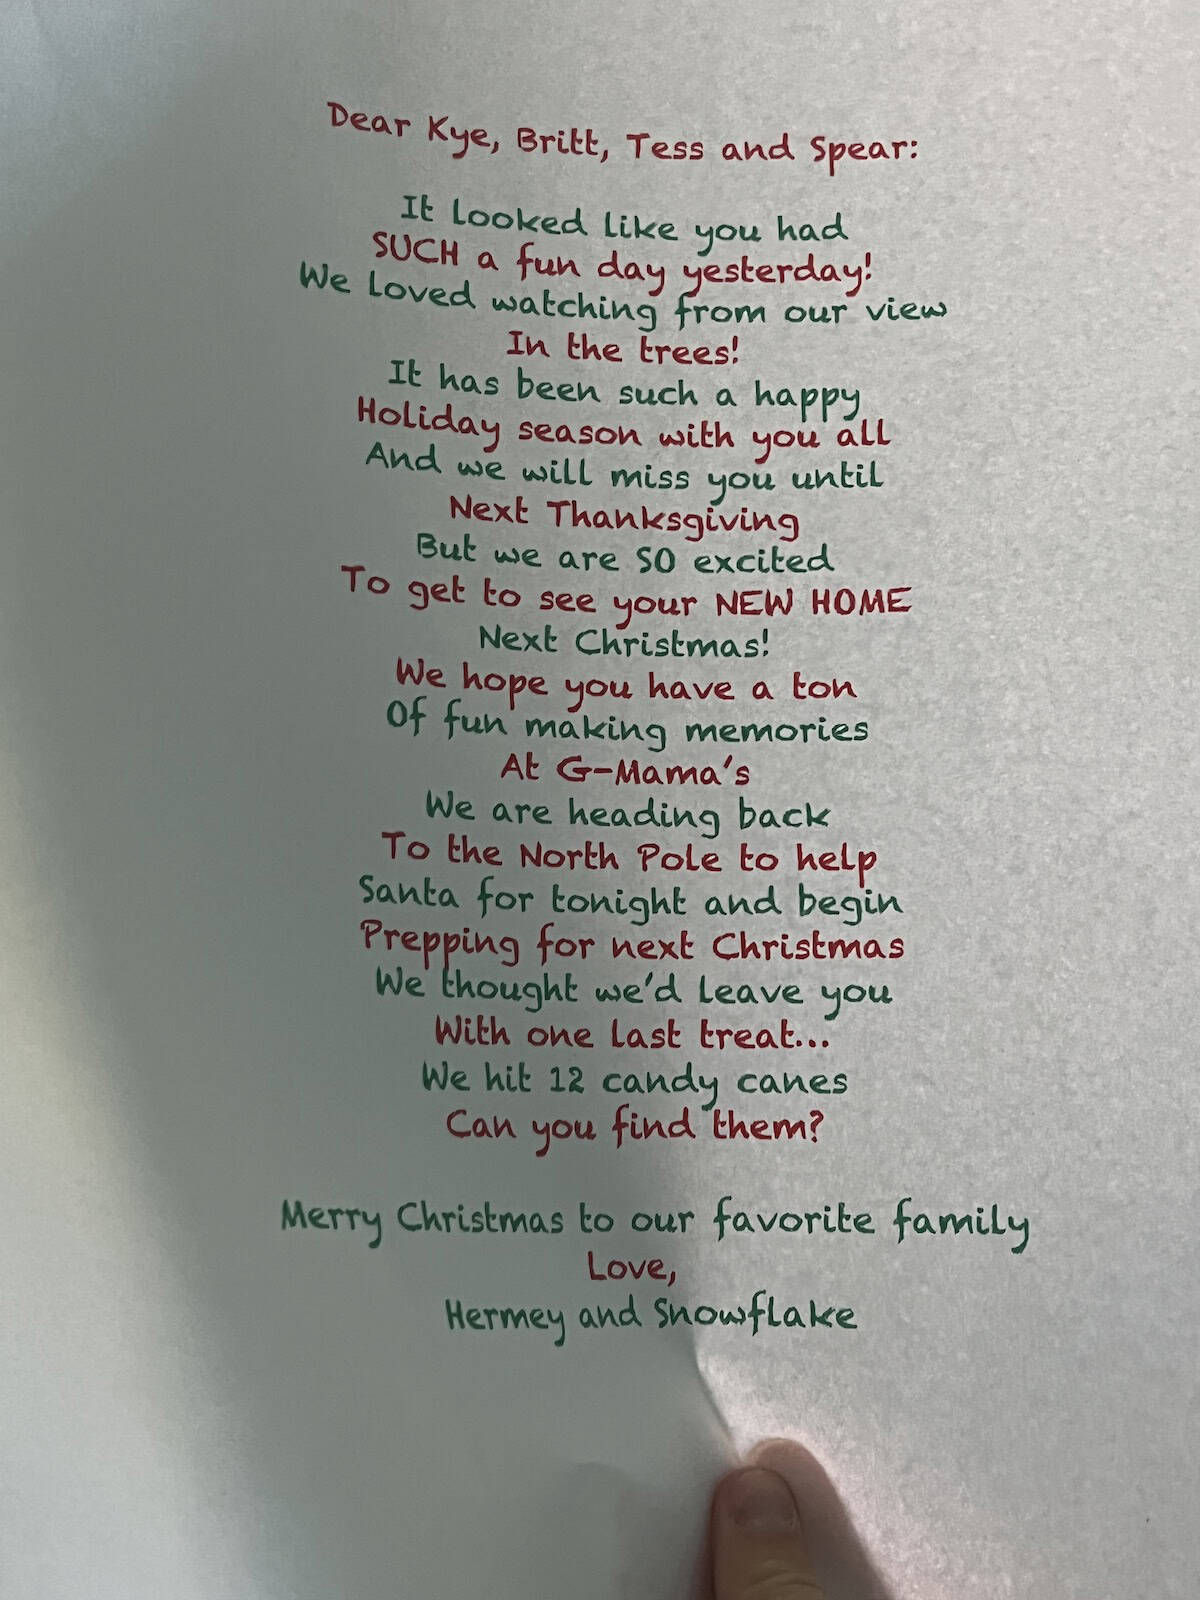 Dear Kye, Britt, Tess and Spear:
It looked like you had
SUCH a fun day yesterday!
We loved watching from our view
In the trees!
It has been such a happy
Holiday season with you all
And we will miss you until
Next Thanksgiving
But we are SO excited
To get to see your NEW HOME
Next Christmas!
We hope you have a ton
Of fun making memories
At G-Mama's
We are heading back
To the North Pole to help
Santa for tonight and begin
Prepping for next Christmas
We thought we'd leave you
With one last treat...
We hit 12 candy canes
Can you find them?
Merry Christmas to our favorite family
Love,
Hermey and Snowflake